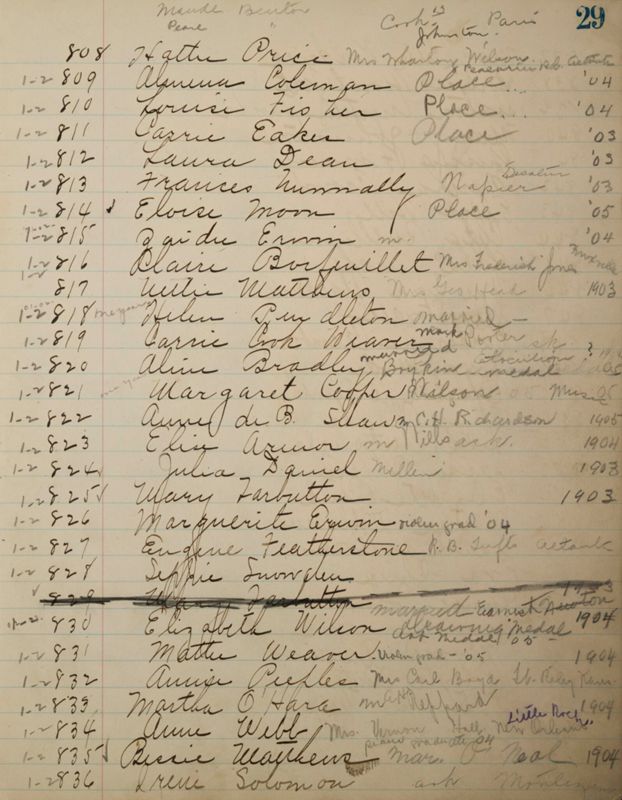 Maude Benton Cook is Paris 29
Pearl " Johnston
808 Hattie Price Mrs Wharton Wilson
1-2 809 Almena Coleman Place '04
1-2 810 Louise Fisher Place '04
1-2 811 Carrie Eakes Place '03
1-2 812 Laura Dean '03
1-2 813 Frances Nunnally Napier Decatur '03
1-2 814 Eloise Moon Place '05
1-2 815 Zaidee Erwin m. '04
1-2 816 Claire Borfeuillet Mrs Frederick Jones
817 Nettie Matthews Mrs Geo Head 1903
1-2 818 Helen Pendleton married
1-2 819 Carrie Cook Weaver mark Porter
1-2 820 Aline Bradley married Boykin Elocution medal
1-2 821 Margaret Cooper Wilson 05 Mus 05
1-2 822 Anne de B. Shaw m C. H. Richardson 1905
1-2 823 Elise Armor m 1904
1-2 824 Julia Daniel Miller 1903
1-2 825 Mary Tarbutton 1903
1-2 826 Marguerite Erwin violin grad '04
1-2 827 Eugene Featherstone R. B. Tufts
1-2 828 Seppie Snowden
829 Mary Tarbutton 1903
830 Elizabeth Wilson married Earnest Newton Drawing Medal 1904
Art Medal '05
1-2 831 Mattie Weaver violin grad - '05 1904
1-2 832 Annie Peeples Mrs Carl Boyd
1-2 833 Martha O'Hara m Neppard 1904
1-2 834 Anne Webb Mrs. Vernon Hall Little Rock
1-2 835 Bessie Matthews piano graduate 04 mar. O Neal 1904
1-2 836 Irene Solomon ask